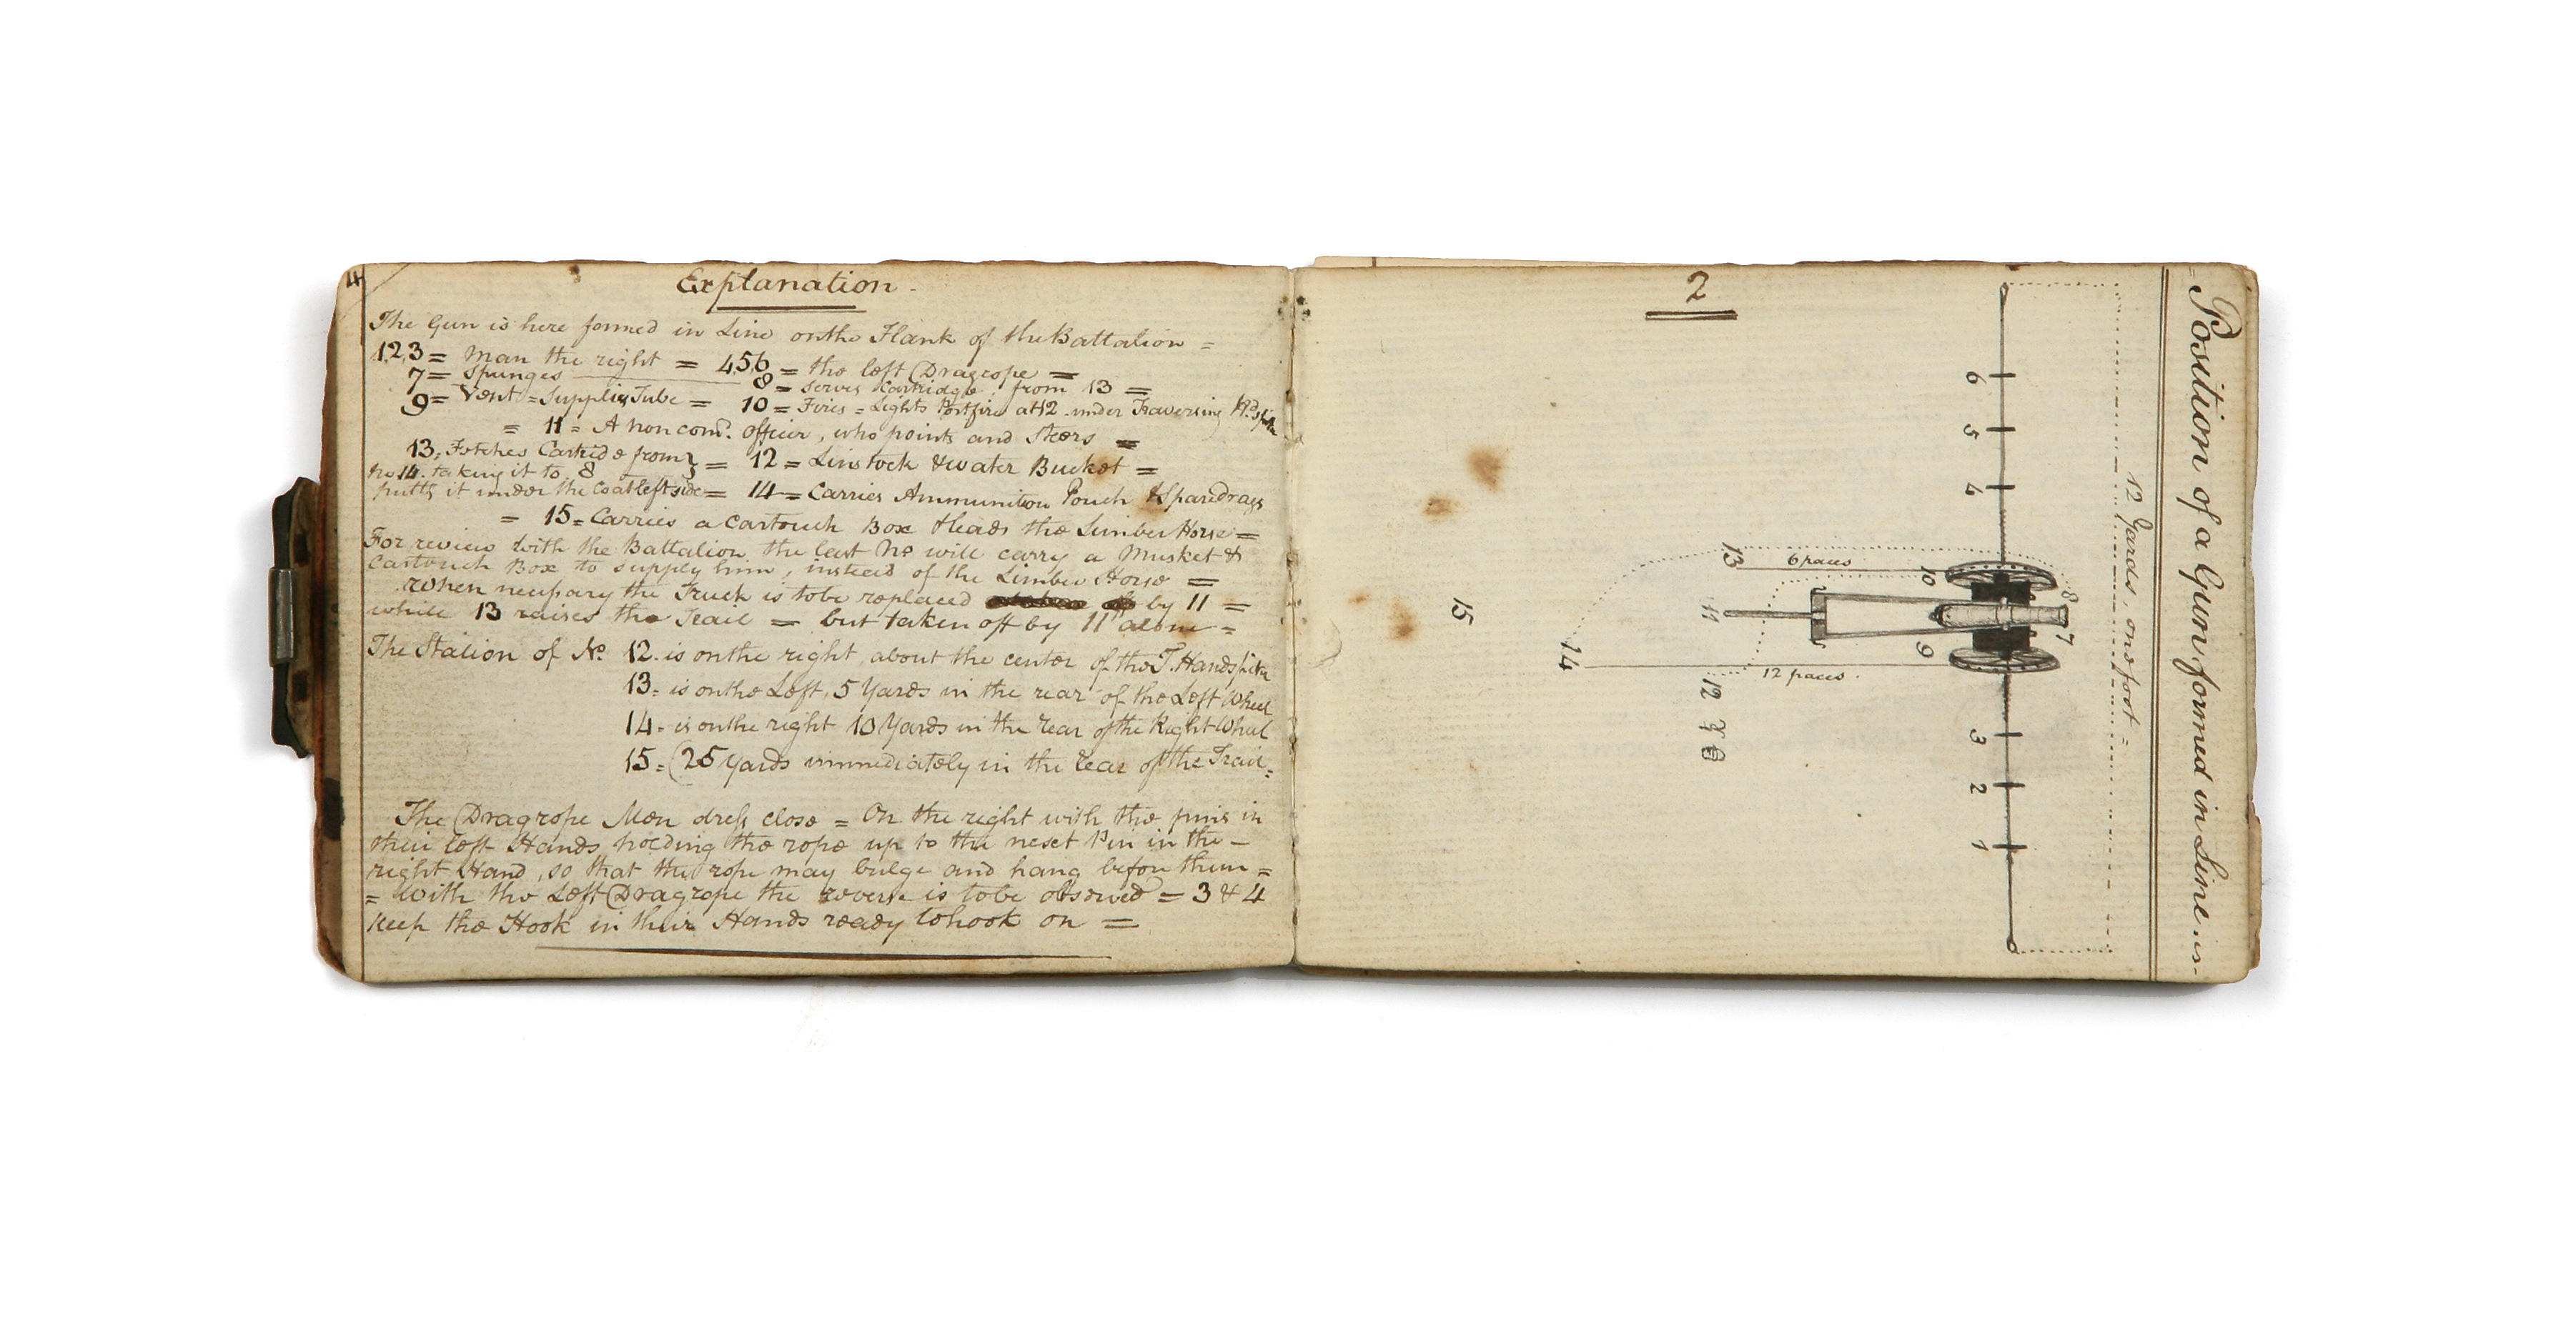 4
Explanation -
The Gun is here formed in Line on the Flank of the Battalion =
1,2,3 = Man the right = 4,5,6 = the left Dragrope =
7 = Spunges 8 = Serves Cartridge from 13 =
9 = Vent = Supplies Tube = 10 = Fires = Lights Portfire at 12 under Traversing
= 11 = A non com.d officer, who points and Steers =
13 = Fetches from } = 12 = Linstock & water Bucket =
No 14. taking it to 8
putts it under the Coat left side = 14 = Carries Ammunition Pouch & Spare drags
= 15 = Carries a Cartouch Box & leads the Limber Horse =
For review with the Battalion the last No will carry a Musket &
Cartouch Box to supply him, instead of the Limber Horse =
When necessary the Truck is to be replaced by 11 =
while 13 raises the Trail = but taken off by 11 alone =
The Station of No 12. is on the right, about the center of the T. Handspike
13 = is on the Left, 5 Yards in the rear of the Left Wheel
14 = is on the right 10 Yards in the Rear of the Right Wheel
15 = (25 Yards immediately in the Rear of the Trail =
The Dragrope Men dress close = On the right with the pins in
their left Hands holding the rope up to the next Pin in the -
right Hand, so that the rope may bulge and hang before them =
= With the Left Dragrope the reverse is to be observed = 3 & 4
keep the Hook in their Hands ready to hook on =
2
= Position of a Gun formed in Line
12 Yards, one foot =
6
5
4
8
7
10
9
3
2
1
13
6 paces
11
12 paces
12
14
15